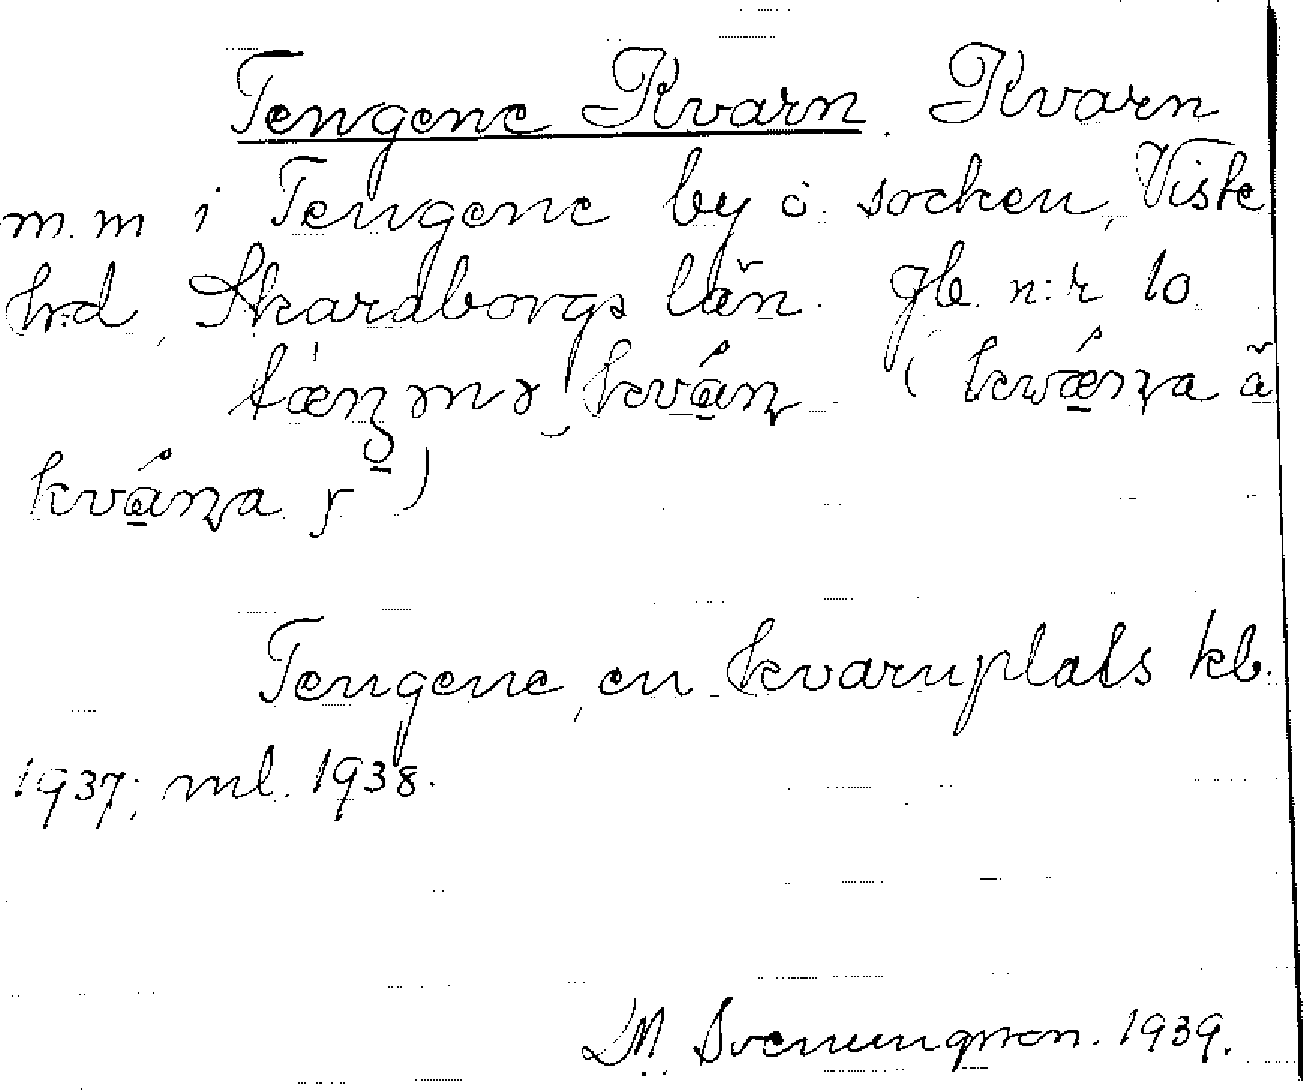 Tengene Kvarn. Kvarn
m.m i Tengene by o. socken, Viste
hrd, Skaraborgs län. gb. n:r 10.
kvarna
Tengene, en kvarnplats kb.
1937; ml. 1938.
M. Svenungsson. 1939.